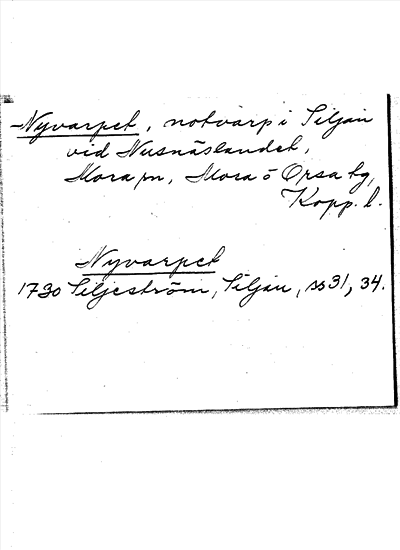 Nyvarpet, notvarp i Siljan
vid Nusnäslandet,
Mora sn, Mora o Orsa tg,
Kopp. l.
Nyvarpet
1730 Siljeström, Siljan, ss 31, 34.